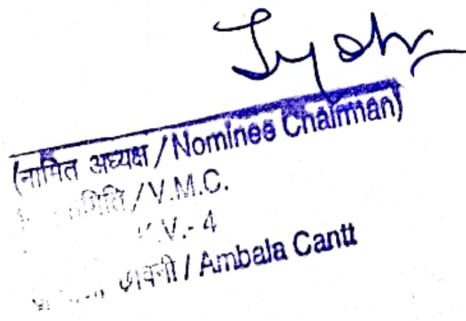 Jyoti
(नामित अध्यक्ष / Nominee Chairman)
/ V.M.C.
K.V.- 4
छावनी / Ambala Cantt